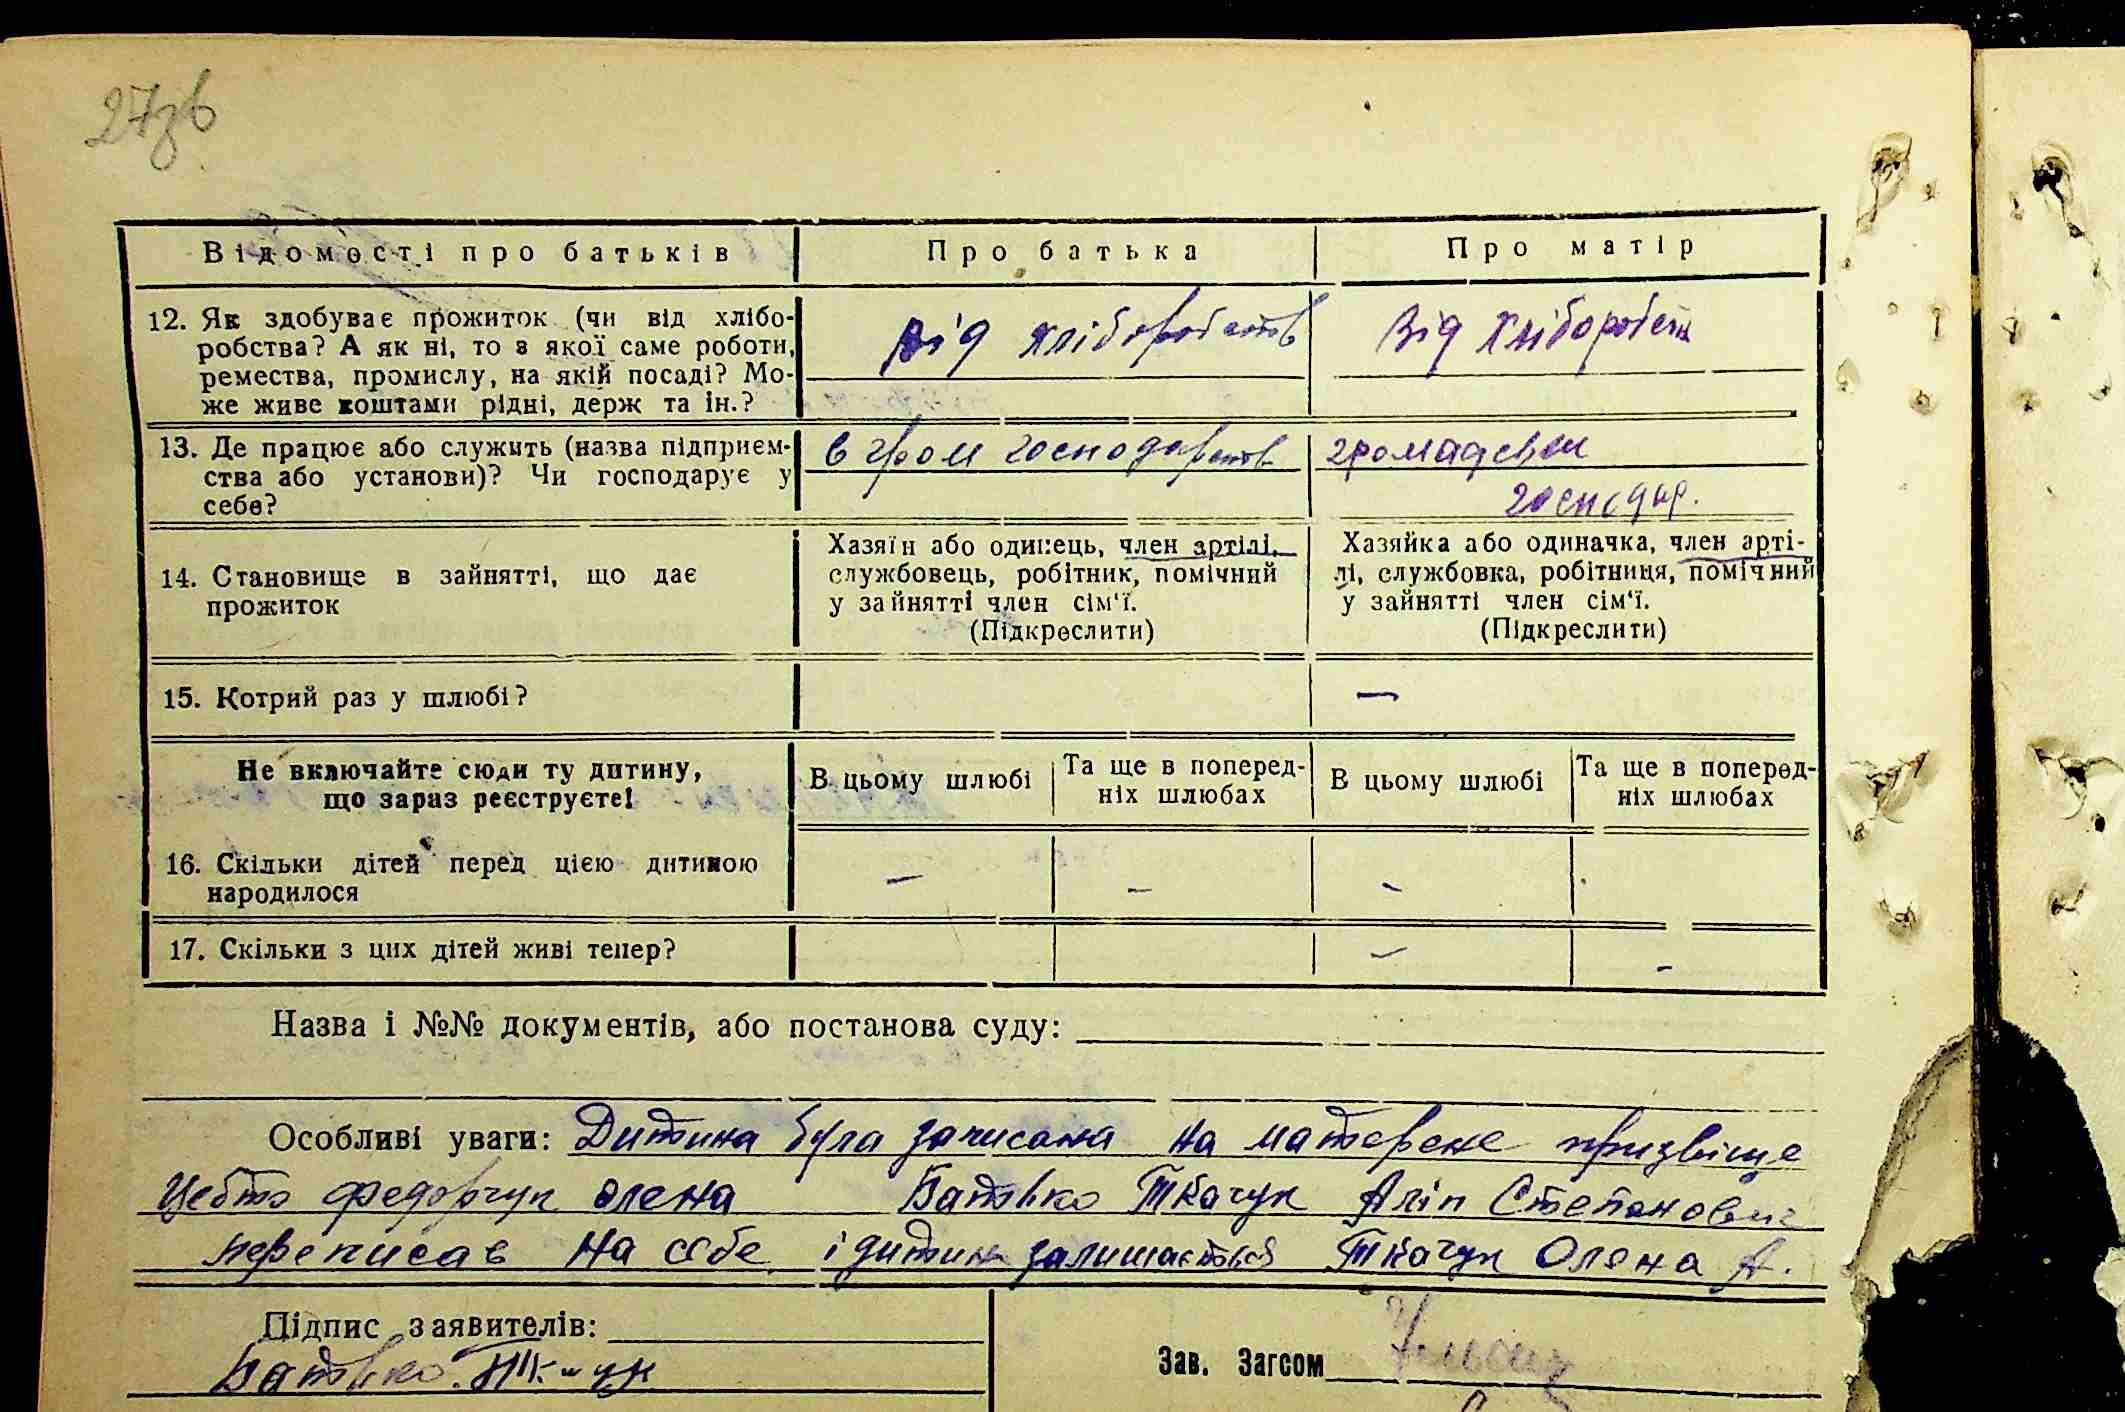 27зв
Відомості про батьків Про батька Про матір
12. Як здобуває прожиток (чи від хлібо-
робства? А як ні, то з якої саме роботи,
ремества, промислу, на якій посаді? Мо-
же живе коштами рідні, держ та ін.?
від хліборобств Від хліборобств
13. Де працює або служить (назва підприєм-
ства або установи)? Чи господарує у
себе?
в гром господарств
громадським
господар.
14. Становище в зайнятті, що дає
прожиток
Хазяїн або одинець, член артілі,
службовець, робітник, помічний
у зайнятті член сім'ї.
(Підкреслити)
Хазяйка або одиначка, член арті-
лі, службовка, робітниця, помічний
у зайнятті член сім'ї.
(Підкреслити)
15. Котрий раз у шлюбі? —
Не включайте сюди ту дитину,
що зараз реєструєте!
В цьому шлюбі
Та ще в поперед-
ніх шлюбах
В цьому шлюбі
Та ще в поперед-
ніх шлюбах
16. Скільки дітей перед цією дитиною
народилося
— - -
17. Скільки з цих дітей живі тепер? - -
Назва і №№ документів, або постанова суду:
Особливі уваги: Дитина була записана на матерене призвіще
Цебто Федорчук Олена Батько Ткачук Аліп Степанович
переписав на себе і дитина залишається Ткачук Олена А.
Підпис заявителів:
Батько
Зав. Загсом